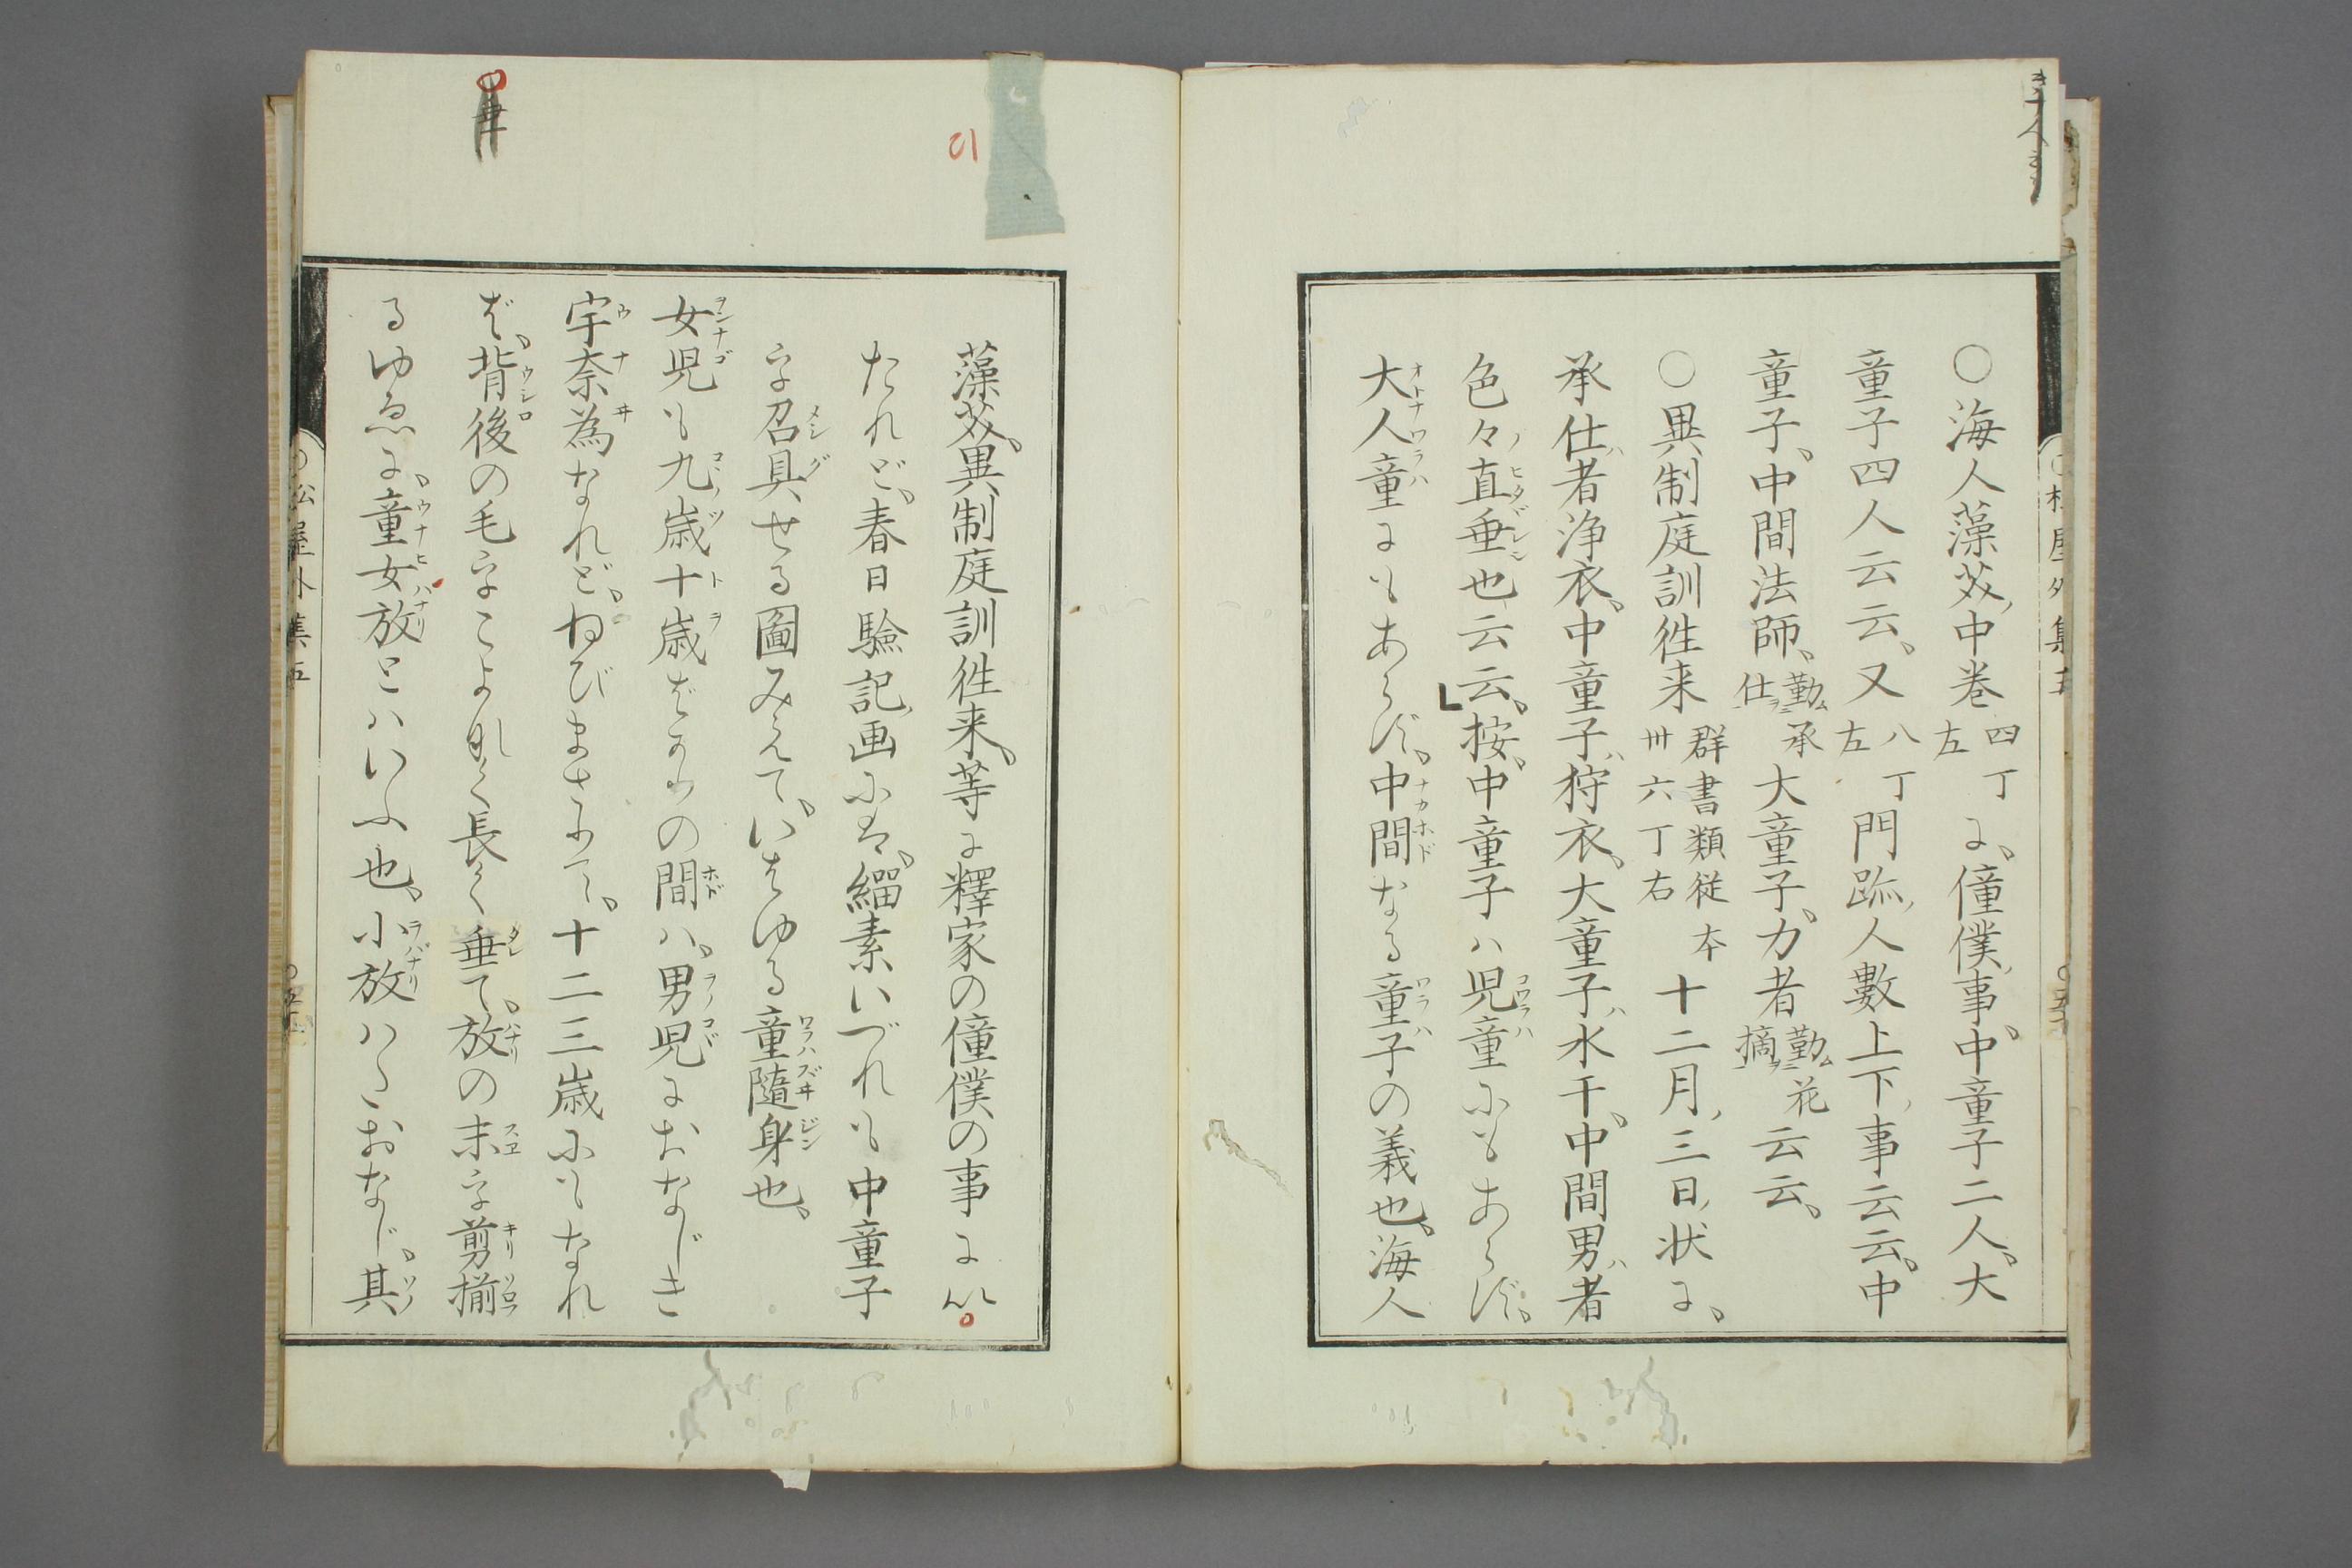 ○海人藻芥、中巻四丁左に、僮僕、事、中童子二人、大
童子四人云云、又八丁左門跡、人數上下、事云云、中
童子、中間法師、勤承仕大童子、力者勤花摘云云、
○異制庭訓徃来群書類従本卅六丁右十二月、三日、状に、
承仕者浄衣、中童子狩衣、大童子水干、中間男者
色々直垂也云云、按、中童子ハ児童にもあらず、
大人童にもあらず、中間なる童子の義也、海人
藻芥、異制庭訓徃来、等に釋家の僮僕の事にい
たれど、春日驗記、画には、緇素いづれも中童子
を召具せる圖みえて、いはゆる童隨身也、
女児も九歳十歳ばかりの間ハ、男児におなじき
宇奈為なれど、ねびまさりて、十二三歳にもなれ
ば、背後の毛をこよなく長く垂て、放の末を剪揃
るゆゑに、童女放とハいふ也、小放ハヽおなじ、其
○松屋外集五